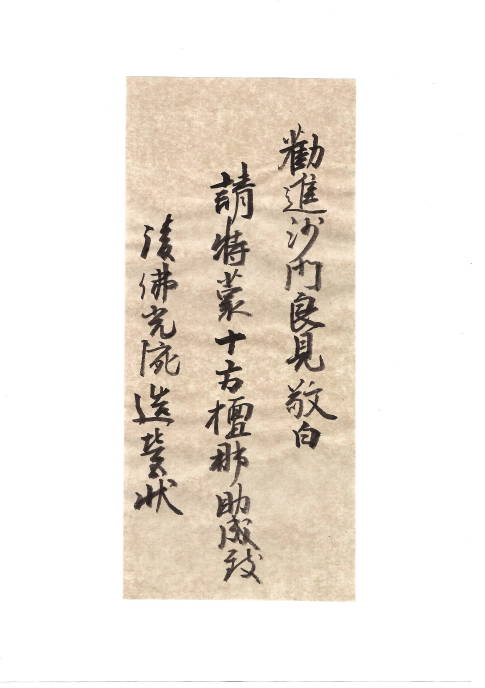 勸進沙門良見敬白
請特蒙十方檀那助成致
佛光院造營状